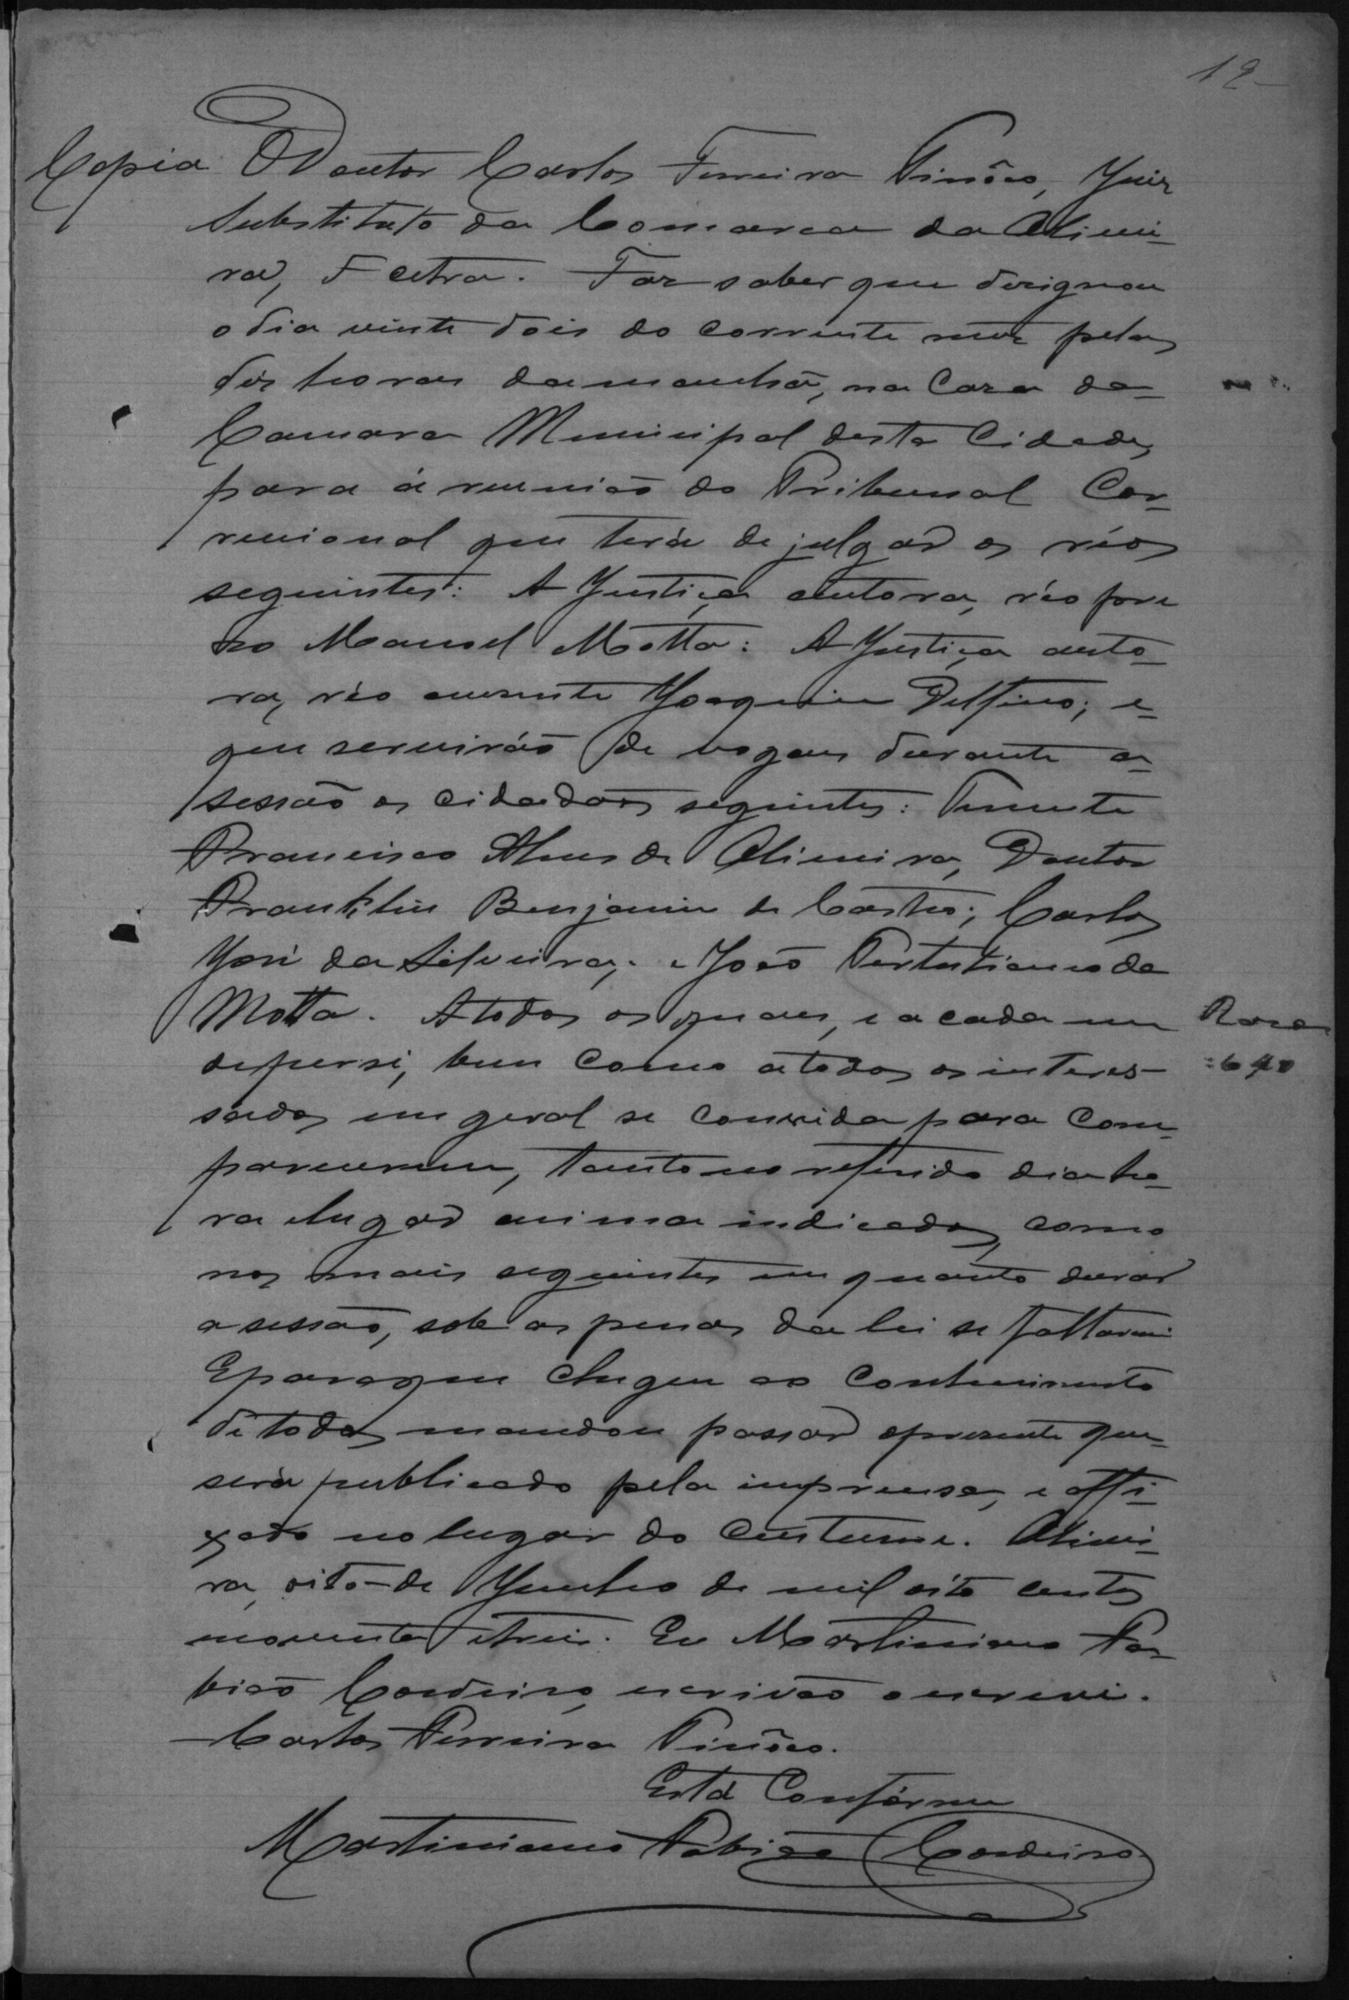 12
Copia O Doutor Carlos Ferreira Tinôco, Juiz
Substituto da Comarca da Olivei-
ra, Et cetra. Faz saber que designou
o dia vinte dois do corrente mez pelas
dez horas da manhã, na Caza da
Camara Municipal desta Cidade,
para á reunião do Tribunal Cor-
reccional que terá de julgar os réos
seguintes: A Justiça autora, réo pre
zo Manoel Motta: A Justiça auto-
ra, réo auzente Joaquim Delfino; e
que servirão de vogaes durante a
sessão os cidadãos seguintes: Tenente
Francisco Alves de Oliveira, Doutor
Franklin Benjamin de Castro; Carlos
José da Silveira; e João Tertuliano da
Motta. A todos os quaes, e a cada um
de per si, bem como a todos os interes-
sados em geral se convida para com-
parecerem, tanto no referido dia ho-
ra e lugar acima indicados, como
nos mais seguintes em quanto durar
a sessão, sob as penas da lei se faltarem
E para que chegue ao conhecimento
de todos, mandou passar o presente que
será publicado pela imprensa, e affi-
xado no lugar do custume. Olivei-
ra, oito de Junho de mil oito centos
noventa e treis. Eu Martiniano Fa-
bião Cordeiro, escrivão o escrevi.
Carlos Ferreira Tinôco.
Está Confórme
Martiniano Fabião Cordeiro